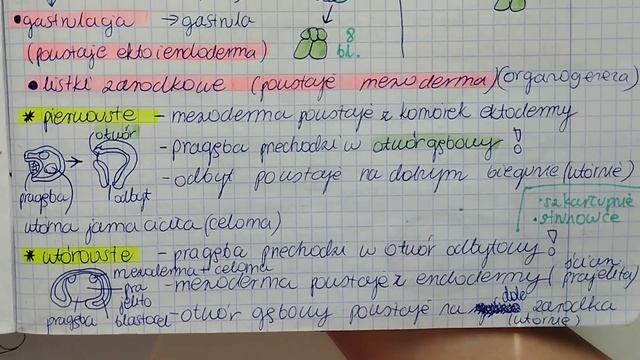 • gastrulacja → gastrula
(powstaje ekto i endoderma)
8
bl.
• listki zarodkowe (powstaje mezoderma) (organogeneza)
* pierwouste - mezoderma powstaje z komórek ektodermy
otwór
- pragęba przechodzi w otwór gębowy !
- odbyt powstaje na dolnym biegunie (wtórnie)
pragęba
odbyt
• szkarłupnie
• strunowce
wtórna jama ciała (celoma)
* wtórouste - pragęba przechodzi w otwór odbytowy !
mezoderma + celoma
pra
jelito
- mezoderma powstaje z endodermy (ścian prajelita)
pragęba
blastocel
- otwór gębowy powstaje na dole zarodka
(wtórnie)